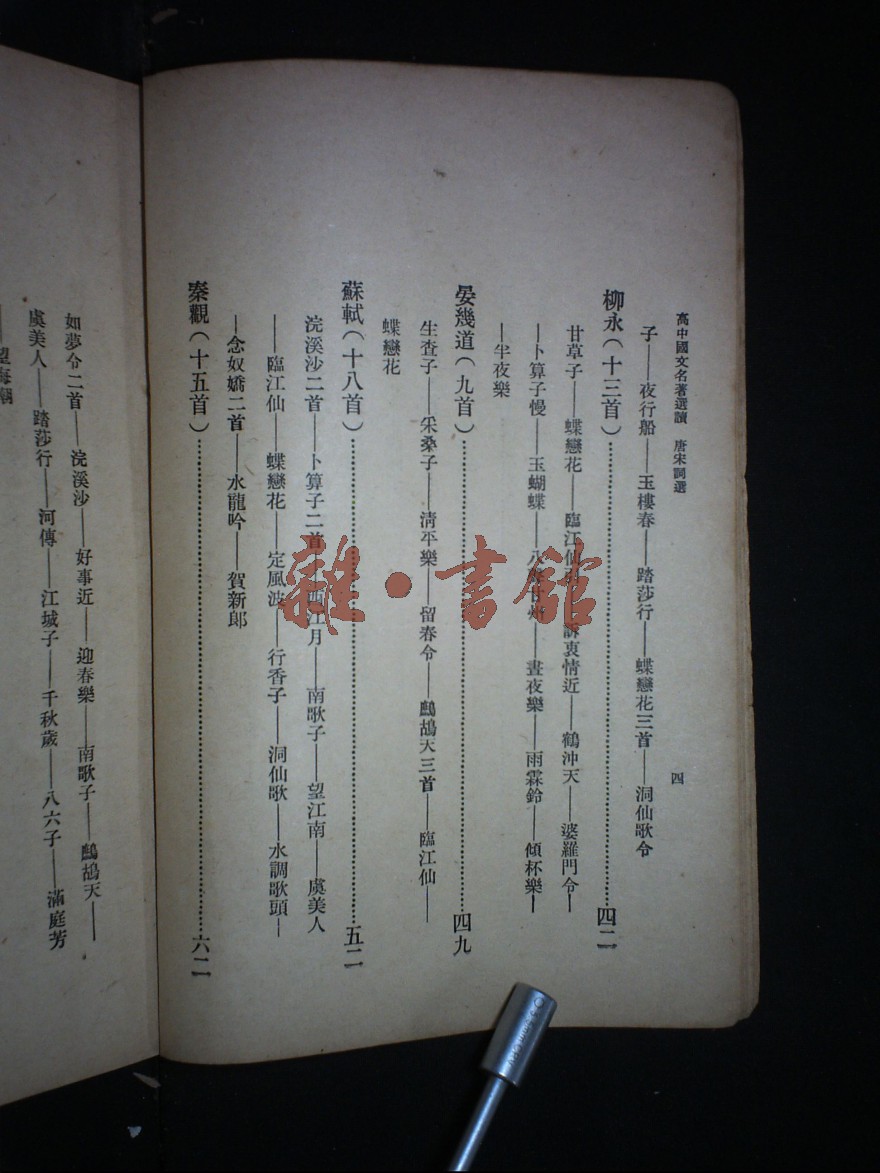 高中國文名著選讀　唐宋詞選　四
子——夜行船——玉樓春——踏莎行——蝶戀花三首——洞仙歌令
柳永（十三首）……四二
甘草子——蝶戀花——臨江仙　訴衷情近——鶴沖天——婆羅門令—
—卜算子慢——玉蝴蝶——八聲甘州——晝夜樂——雨霖鈴——傾杯樂—
—半夜樂
晏幾道（九首）……四九
生查子——采桑子——清平樂——留春令——鷓鴣天三首——臨江仙——
蝶戀花
蘇軾（十八首）……五二
浣溪沙二首——卜算子二首——西江月　南歌子——望江南——虞美人
——臨江仙——蝶戀花——定風波——行香子——洞仙歌——水調歌頭—
—念奴嬌二首——水龍吟——賀新郎
秦觀（十五首）……六二
如夢令二首——浣溪沙——好事近——迎春樂——南歌子——鷓鴣天——
虞美人——踏莎行——河傳——江城子——千秋歲——八六子——滿庭芳
——望海潮
雜·書館